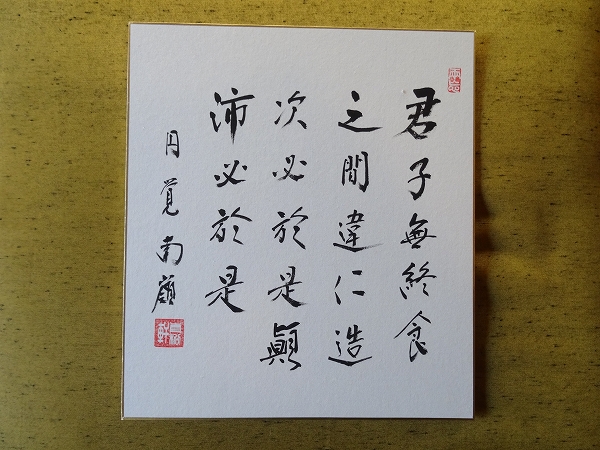 君子無終食
之間違仁造
次必於是顚
沛必於是
円覚南嶺